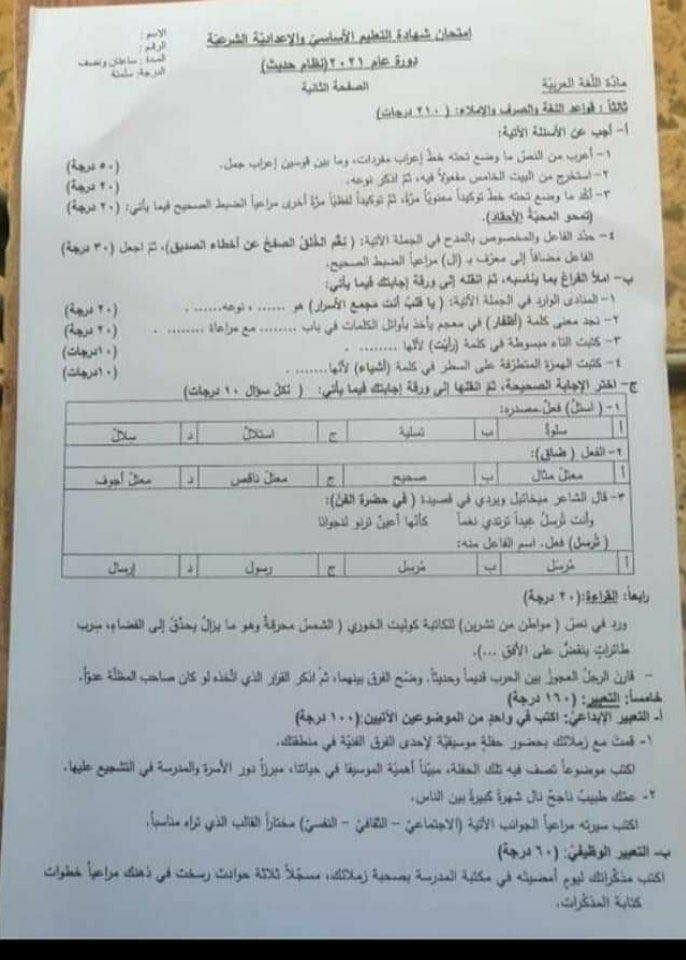 امتحان شهادة التعليم الأساسي والإعدادية الشرعية
الاسم :
الرقم :
دورة عام ٢٠٢١ (نظام حديث)
المدة : ساعتان ونصف
الدرجة: ستمئة
مادّة اللّغة العربيّة
الصفحة الثانية
ثالثاً : قواعد اللغة والصرف والإملاء: ( ٢١٠ درجات)
أ- أجب عن الأسئلة الآتية:
١- أعرب من النصّ ما وضع تحته خطّ إعراب مفردات، وما بين قوسين إعراب جمل. (٥٠ درجة)
٢- استخرج من البيت الخامس مفعولاً فيه، ثمّ اذكر نوعه. (٢٠ درجة)
٣- أكّد ما وضع تحته خطّ توكيداً معنويّاً مرّة، ثمّ توكيداً لفظيّاً مرّة أخرى مراعياً الضبط الصحيح فيما يأتي: (٢٠ درجة)
(تمحو المحبّة الأحقاد).
٤- حدّد الفاعل والمخصوص بالمدح في الجملة الآتية: ( نِعْمَ الخُلُقُ الصفحُ عن أخطاء الصديق)، ثمّ اجعل (٣٠ درجة)
الفاعل مضافاً إلى معرّف بـ (ال) مراعياً الضبط الصحيح.
ب- املأ الفراغ بما يناسبه، ثمّ انقله إلى ورقة إجابتك فيما يأتي:
١- المنادى الوارد في الجملة الآتية: ( يا قلبُ أنت مجمع الأسرار) هو ...... ، نوعه....... . (٢٠ درجة)
٢- نجد معنى كلمة (أظفار) في معجم يأخذ بأوائل الكلمات في باب ........ مع مراعاة ........ . (٢٠ درجة)
٣- كتبت التاء مبسوطة في كلمة (رأيت) لأنّها ......... . (١٠درجات)
٤- كتبت الهمزة المتطرّفة على السطر في كلمة (أشياء) لأنّها........ . (١٠درجات)
ج- اختر الإجابة الصحيحة، ثمّ انقلها إلى ورقة إجابتك فيما يأتي: ( لكلّ سؤال ١٠ درجات)
١- ( استلّ) فعلٌ مصدره:
أ سلوة ب تسلية ج استلال د سلال
٢- الفعل ( ضاق):
أ معتلّ مثال ب صحيح ج معتلّ ناقص د معتلّ أجوف
٣- قال الشاعر ميخائيل ويردي في قصيدة ( في حضرة الفنّ):
وأنت تُرسلُ غيداً ترتدي نغماً كأنّها أعينٌ ترنو لنجوانا
( تُرسل) فعل. اسم الفاعل منه:
أ مُرسَل ب مُرسِل ج رسول د إرسال
رابعاً: القراءة:(٢٠ درجة)
ورد في نصّ ( مواطن من تشرين) للكاتبة كوليت الخوري ( الشمسُ محرقةٌ وهو ما يزالُ يحدّقُ إلى الفضاءِ، سِرب
طائراتٍ ينقضُّ على الأفقِ ...).
- قارن الرجل العجوز بين الحرب قديماً وحديثاً. وضّح الفرق بينهما، ثمّ اذكر القرار الذي اتّخذه لو كان صاحب المظلّة عدوّاً.
خامساً: التعبير: (١٦٠ درجة)
أ- التعبير الإبداعيّ: اكتب في واحدٍ من الموضوعين الآتيين:(١٠٠ درجة)
١- قمت مع زملائك بحضور حفلةٍ موسيقيّة لإحدى الفرق الفنّيّة في منطقتك.
اكتب موضوعاً تصف فيه تلك الحفلة، مبيّناً أهميّة الموسيقا في حياتنا، مبرزاً دور الأسرة والمدرسة في التشجيع عليها.
٢- عمّك طبيبٌ ناجحٌ نال شهرةً كبيرةً بين الناس.
اكتب سيرته مراعياً الجوانب الآتية (الاجتماعيّ - الثقافيّ - النفسيّ) مختاراً القالب الذي تراه مناسباً.
ب- التعبير الوظيفيّ: (٦٠ درجة)
اكتب مذكّراتك ليومٍ أمضيته في مكتبة المدرسة بصحبة زملائك، مسجّلاً ثلاثة حوادث رسخت في ذهنك مراعياً خطوات
كتابة المذكّرات.